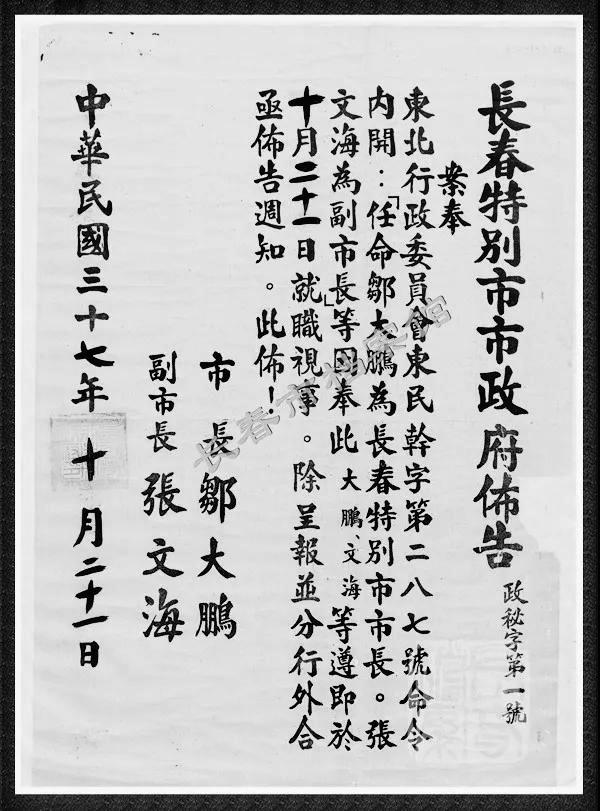 長春特別市市政府佈告
政秘字第一號
案奉
東北行政委員會東民幹字第二八七號命令
内開：「任命鄒大鵬為長春特別市市長。張
文海為副市長」等因奉此大鵬、文海等遵即於
十月二十一日就職視事。除呈報並分行外合
亟佈告週知。此佈！
市長鄒大鵬
副市長張文海
中華民國三十七年十月二十一日
長春市檔案館